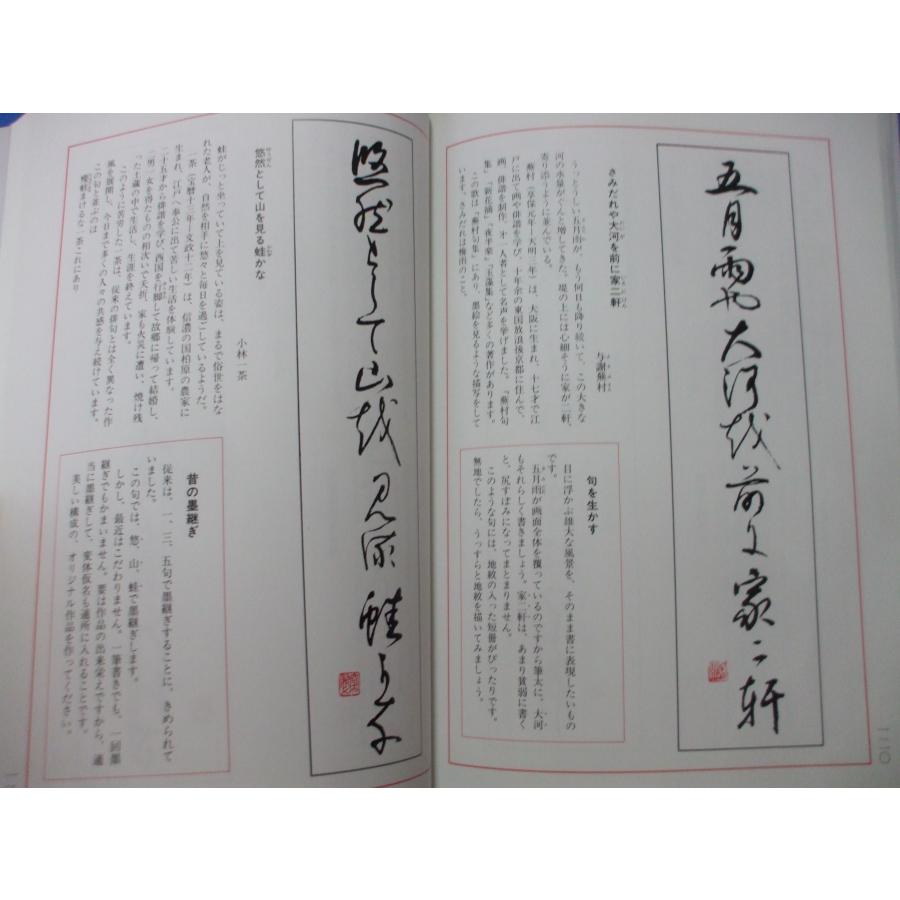 五月雨や大河越前に家二軒
さみだれや大河を前に家二軒
与謝蕪村
うっとうしい五月雨が、もう何日も降り続いて、この大きな
河の水量がぐんと増してきた。堤の上には心細そうに家が二軒、
寄り添うように並んでいる。
蕪村（享保元年―天明三年）は、大阪に生まれ、十七才で江
戸に出て画や俳諧を学び、十年余の東国放浪後京都に住んで、
画、俳諧を制作、才一人者として名声を挙げました。「蕪村句
集」「新花摘」「夜半楽」「玉藻集」など多くの著作があります。
この歌は「蕪村句集」にあり、墨絵を見るような描写をして
います。さみだれは梅雨のこと。
句を生かす
目に浮かぶ雄大な風景を、そのまま書に表現したいもの
です。
五月雨が画面全体を覆っているのですから筆太に、大河
もそれらしく書きましょう。家二軒は、あまり貧弱に書く
と、尻すぼみになってまとまりません。
このような句には、地紋の入った短冊がぴったりです。
無地でしたら、うっすらと地紋を描いてみましょう。
一二〇
悠然として山越見流蛙可奈
悠然として山を見る蛙かな
小林一茶
蛙がじっと坐っていて上を見ている姿は、まるで俗世をはな
れた老人が、自然を相手に悠々と毎日を過ごしているようだ。
一茶（宝暦十三年―文政十二年）は、信濃の国柏原の農家に
生まれ、江戸へ奉公に出て苦しい生活を体験しています。
二十五才から俳諧を学び、西国を行脚して故郷に帰って結婚し、
三男一女を得たものの相次いで夭折、家も火災に遭い、焼け残
った土蔵の中で生活し、生涯を終えています。
このように苦労した一茶は、従来の俳句とは全く異なった作
風を展開し、今日まで多くの人々の共感を与え続けています。
この句と並ぶのは
痩蛙まけるな一茶これにあり
昔の墨継ぎ
従来は、一、三、五句で墨継ぎすることに、きめられて
いました。
この句では、悠、山、蛙で墨継ぎします。
しかし、最近はこだわりません。一筆書きでも、一回墨
継ぎでもかまいません。要は作品の出来栄えですから、適
当に墨継ぎして、変体仮名も適所に入れることです。
美しい構成の、オリジナル作品を作ってください。